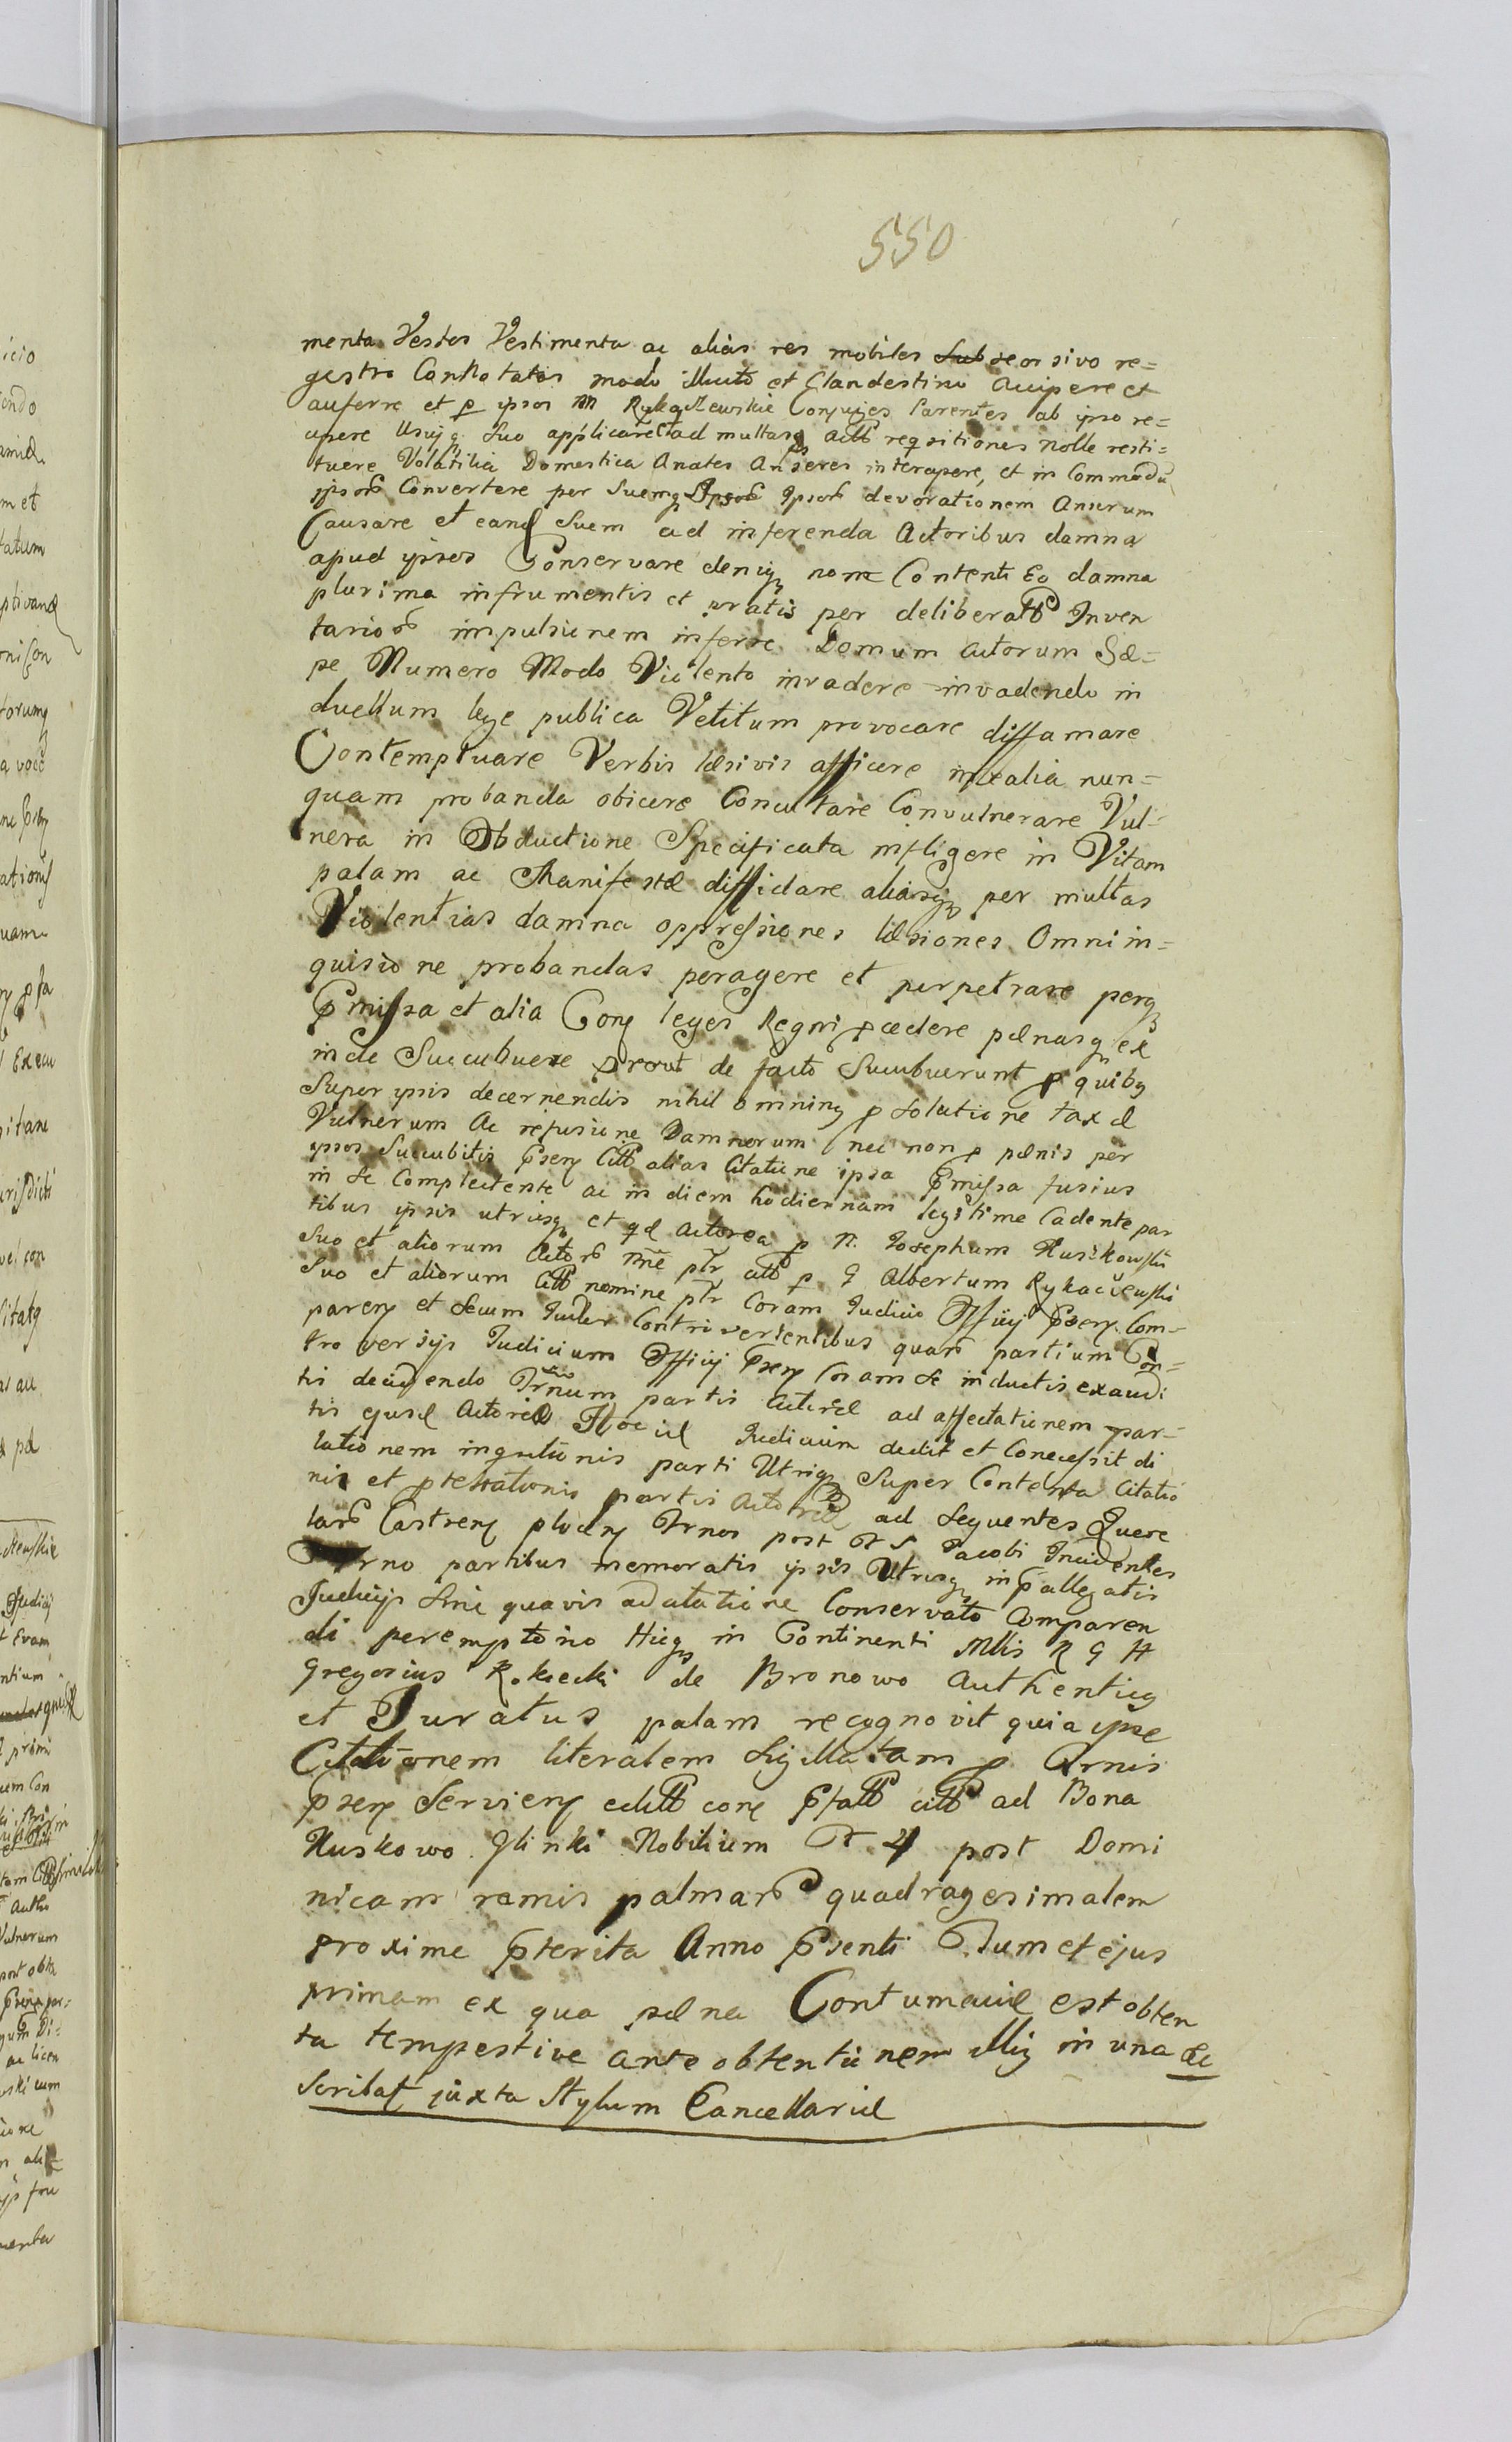 550
menta Vestes Vestimenta ac alias res mobiles seorsivo re=
gestro Connotatas modo illicito et Clandestino accipere et
auferre et p ipsos M Rykaczewskie Conjuges Parentes ab ipso re=
cipere Usuiq suo applicare et ad multasq actt reqsitiones nolle resti=
tuere Volatilia Domestica Anates Anseres intercipere, et in Commodū
ipsorū Convertere per Suemq Ipsorū devorationem Anserum
Causare et eand Suem ad inferenda Actoribus damna
apud ipsos Conservare deniq non Contenti Eo damna
plurima in frumentis et pratis per deliberatt Inven
tariorū impulsionem inferre Domum actorum Sæ=
pe Numero Modo Violento invadere invadendo in
duellum lege publica Vetitum provocare diffamare
Contemptuare Verbis læsivis afficere intealia nun=
quam probanda obicere Concultare Convulnerare Vul=
nera in Obductione Specificata infligere in Vitam
palam ac Manifestæ diffidare aliasq per multas
Violentias damna oppressiones læsiones Omni in=
quisione probandas peragere et perpetrare perq
Pmissa et alia Conq leges Regni pcedere pænasq ex
inde Succubuere prout de facto Succubuerunt p quibq
Super ipsis decernendis nihil omininq p solutione taxæ
Vulnerum Ac refusione Damnorum nec non p pænis per
ipsos Succubitis Psenq Citt alias Citatione ipsa Pmissa fusius
in se Complectente ac in diem hodiernam legitime Cadente par
tibus ipsis utrisq et qd actorea p N. Josephum Kuskowski
Suo et aliorum Actorū nne ptr citt p G Albertum Rykaczewski
Suo et aliorum Citt nomine ptr Coram Judicio Officij Psenq Com=
parenq et secum Controvertentibus quarū partium Con=
troversijs Judicium Officij Psenq Coram se inductis exaudi
tis decidendo Trnum partis actoreæ ad affectationem par=
tis ejusd Actoreæ Hocce Judicium dedit et Concessit di
lationem inqsitionis parti Utriq Super Contenta Citatio
nis et ptestationis partis Actoreæ ad Seqventes Quere
larū Castrenq plocenq Trnos post F S Jacobi Incidentes
Trno partibus memoratis ipsis Utrisq in Pallegatis
Judicijs Sine quavis adcitatione Conservato Comparen
di peremptorio Hicq in Continenti Mllis R G H
Gregorius Rokicki de Bronowo Authenticq
et Juratus palam recognovit quia ipse
Citationem literalem Sigillatam p Trnis
psenq Servienq editt conq Pfatt citt ad Bona
Kuskowo Glinki Nobilium F. 4 post Domi
nicam ramis palmarū quadragesimalem
proxime Pterita Anno Psenti Tum et ejus
primam ex qua pæna Contumaciæ est obten
ta tempestive ante obtentionem illiq in una
Scribat juxta Stylum Cancellariæ